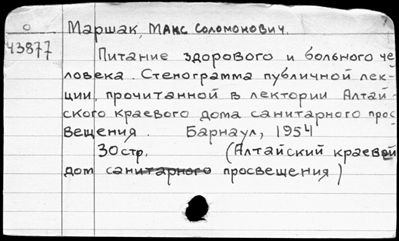 О Маршак, Макс Соломонович.
43877
Питание здорового и больного че
ловека. Стенограмма публичной лек-
ции, прочитанной в лектории Алтай-
ского краевого дома санитарного прос
вещения. Барнаул, 1954
30 стр. (Алтайский краевой
дом санитарного просвещения)